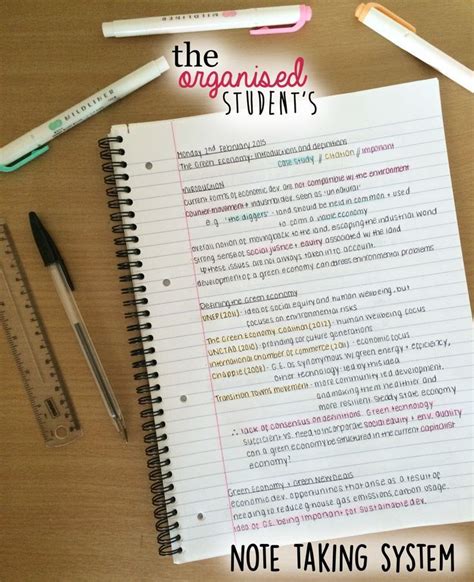 the
organised
STUDENT'S
MILDLINER
MILDLINER
Monday 2nd February 2015
The Green Economy: introductions and definitions
case study // citation // important
INTRODUCTION
current forms of economic dev. are not compatible w/ the environment
counter-movement + industrialism seen as 'unnatural'
e.g. 'the diggers' - land should be held in common + used
to form a viable economy
overall notion of moving back to the land, escaping the industrial world
strong sense of social justice + equity associated w/ the land
these issues are not always taken into account.
development of a green economy can across environmental problems
Defining the Green Economy
UNEP (2011) - idea of social equity and human wellbeing, but
focuses on environmental risks
The Green Economy Coalition (2012) - human wellbeing focus
UNCTAD (2010) - providing for future generations
international chamber of commerce (2011) - economic focus
Chapple (2008) - G.E. as synonymous w/ green energy + efficiency,
other technology led by this idea
Transition Towns movement - more community led development,
and making them healthier and
more resilient. Steady state economy
∴ lack of consensus on definitions. Green technology
sufficient vs. need to incorporate social equity + env. quality
can a green economy be structured in the current capitalist
economy?
Green Economy + Green New Deals
economic dev. opportunities that arise as a result of
needing to reduce g'house gas emissions, carbon usage.
idea of G.E. being important for sustainable dev.
NOTE TAKING SYSTEM